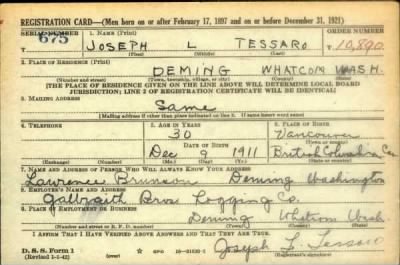 REGISTRATION CARD—(Men born on or after February 17, 1897 and on or before December 31, 1921)
SERIAL NUMBER 1. Name (Print) ORDER NUMBER
675 JOSEPH L TESSARO 10,890
(First) (Middle) (Last)
2. PLACE OF RESIDENCE (Print)
DEMING WHATCOM WASH.
(Number and street) (Town, township, village, or city) (County) (State)
[THE PLACE OF RESIDENCE GIVEN ON THE LINE ABOVE WILL DETERMINE LOCAL BOARD
JURISDICTION; LINE 2 OF REGISTRATION CERTIFICATE WILL BE IDENTICAL]
3. MAILING ADDRESS
Same
[Mailing address if other than place indicated on line 2. If same insert word same]
4. TELEPHONE 5. AGE IN YEARS 6. PLACE OF BIRTH
30 Vancouver
DATE OF BIRTH (Town or county)
Dec 9 1911 British Columbia Can
(Exchange) (Number) (Mo.) (Day) (Yr.) (State or country)
7. NAME AND ADDRESS OF PERSON WHO WILL ALWAYS KNOW YOUR ADDRESS
Lawrence Brunson Deming Washington
8. EMPLOYER'S NAME AND ADDRESS
Galbraith Bros Logging Co.
9. PLACE OF EMPLOYMENT OR BUSINESS
Deming Whatcom Wash
(Number and street or R. F. D. number) (Town) (County) (State)
I AFFIRM THAT I HAVE VERIFIED ABOVE ANSWERS AND THAT THEY ARE TRUE.
D. S. S. Form 1 GPO
(Revised 1-1-42) (over) Joseph L Tessaro